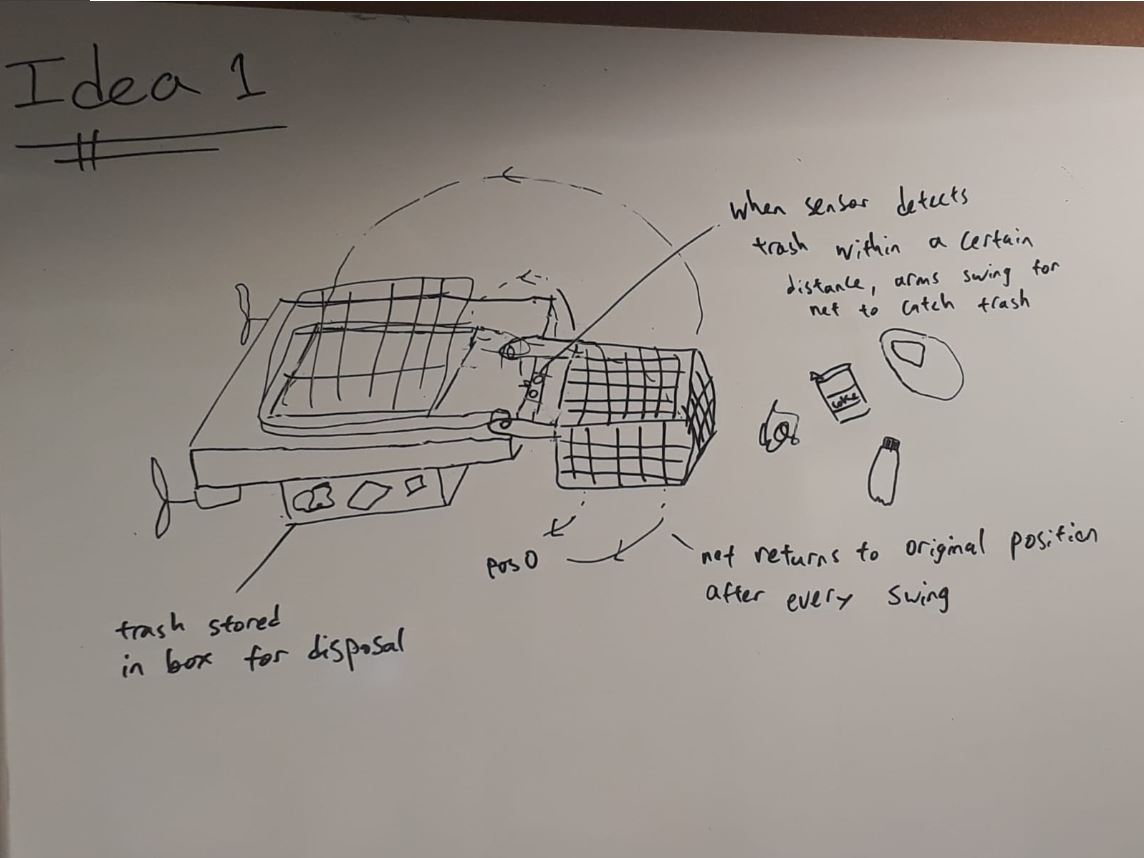 Idea 1
when sensor detects
trash within a certain
distance, arms swing for
net to catch trash
coke
pos 0
net returns to original position
after every swing
trash stored
in box for disposal